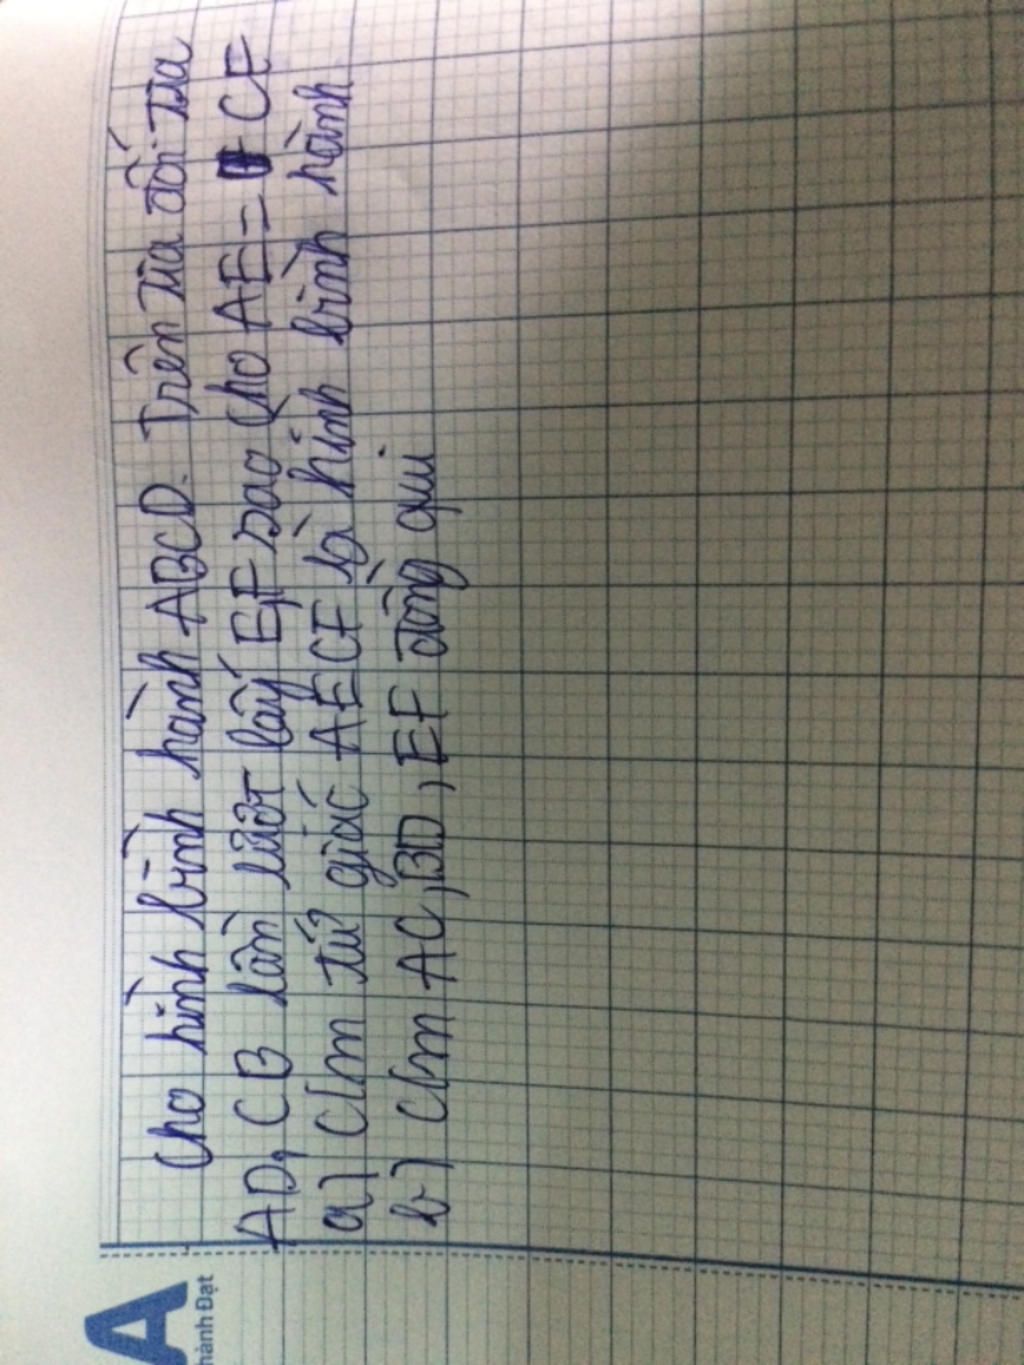 Cho hình bình hành ABCD. Trên tia đối tia
AD, CB lần lượt lấy E,F sao cho AE = CF
a) C/m tứ giác AECF là hình bình hành
b) C/m AC, BD, EF đồng qui
A
hành Đạt